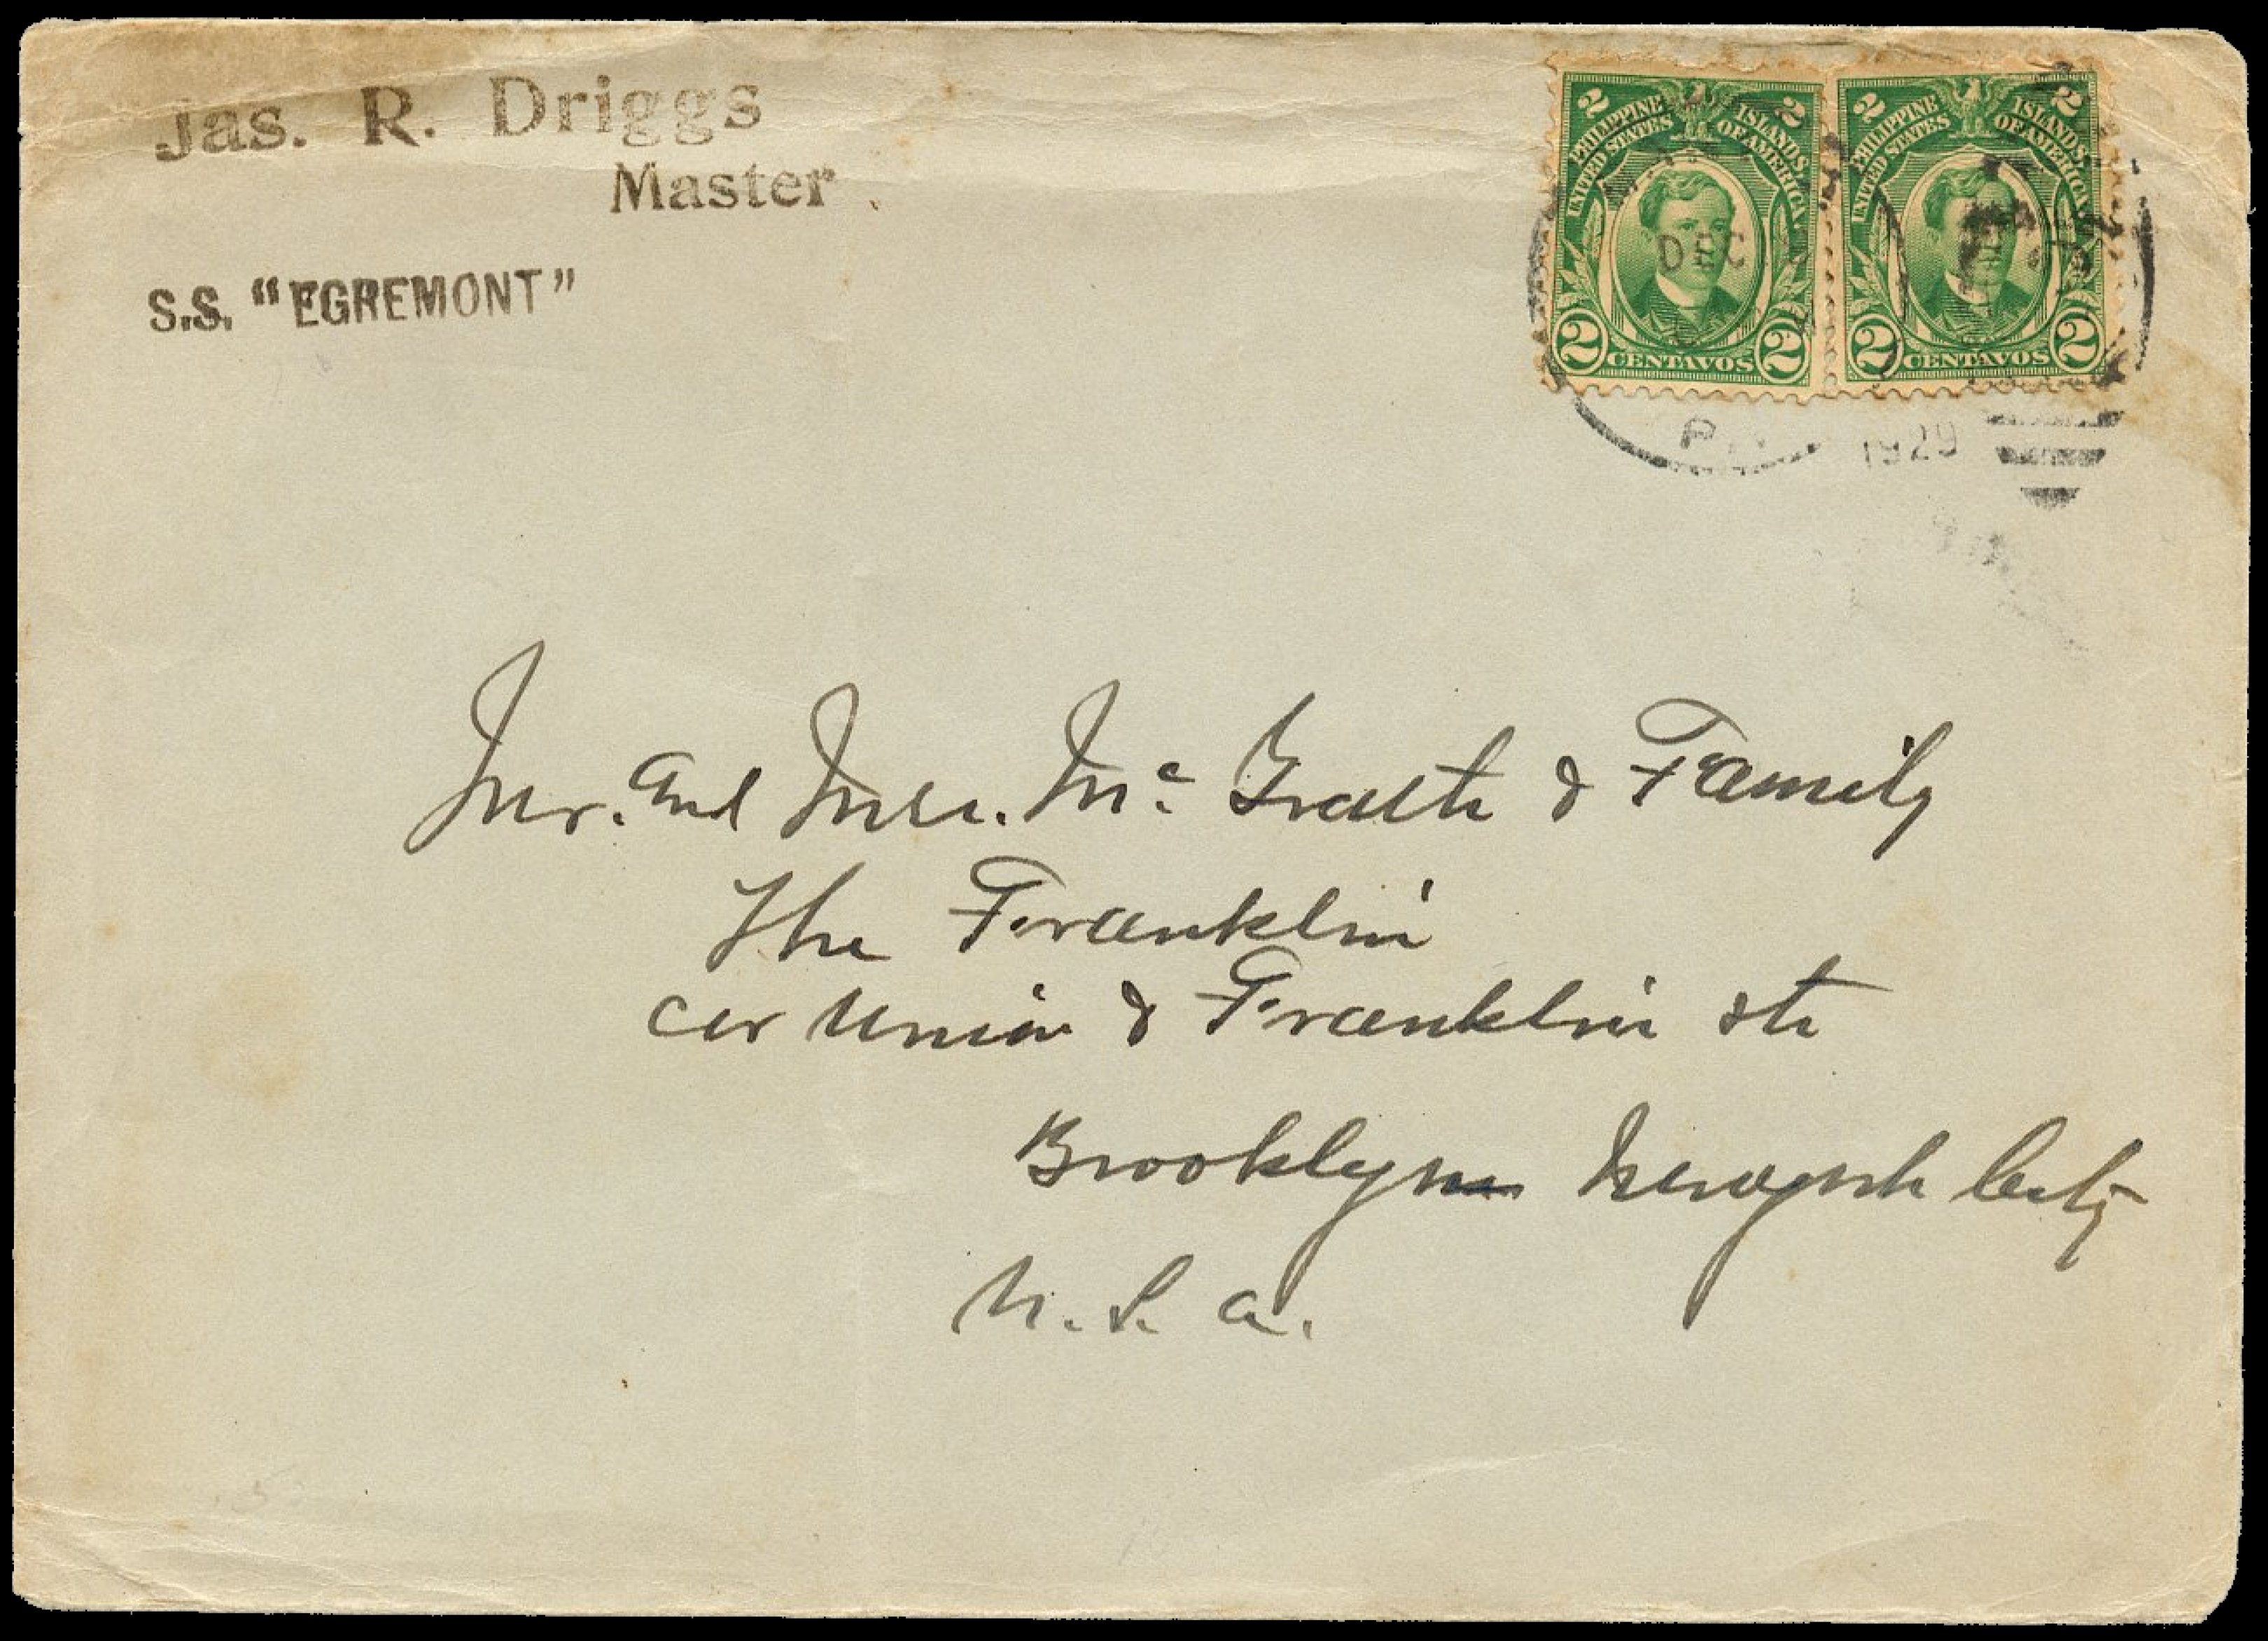 Jas. R. Driggs
Master
S.S. "EGREMONT"
2 2
PHILIPPINE ISLANDS
UNITED STATES OF AMERICA
2 CENTAVOS 2
2 2
PHILIPPINE ISLANDS
UNITED STATES OF AMERICA
2 CENTAVOS 2
DEC
P.
1929
Mr. and Mrs. Mc Grath & Family
The Franklin
cor Union & Franklin sts
Brooklyn Newyork City
U.S.A.